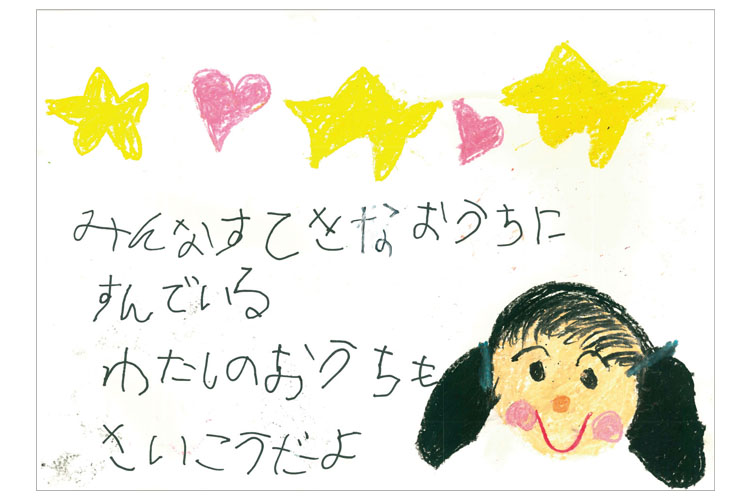 みんなすてきなおうちに
すんでいる
わたしのおうちも
さいこうだーよ